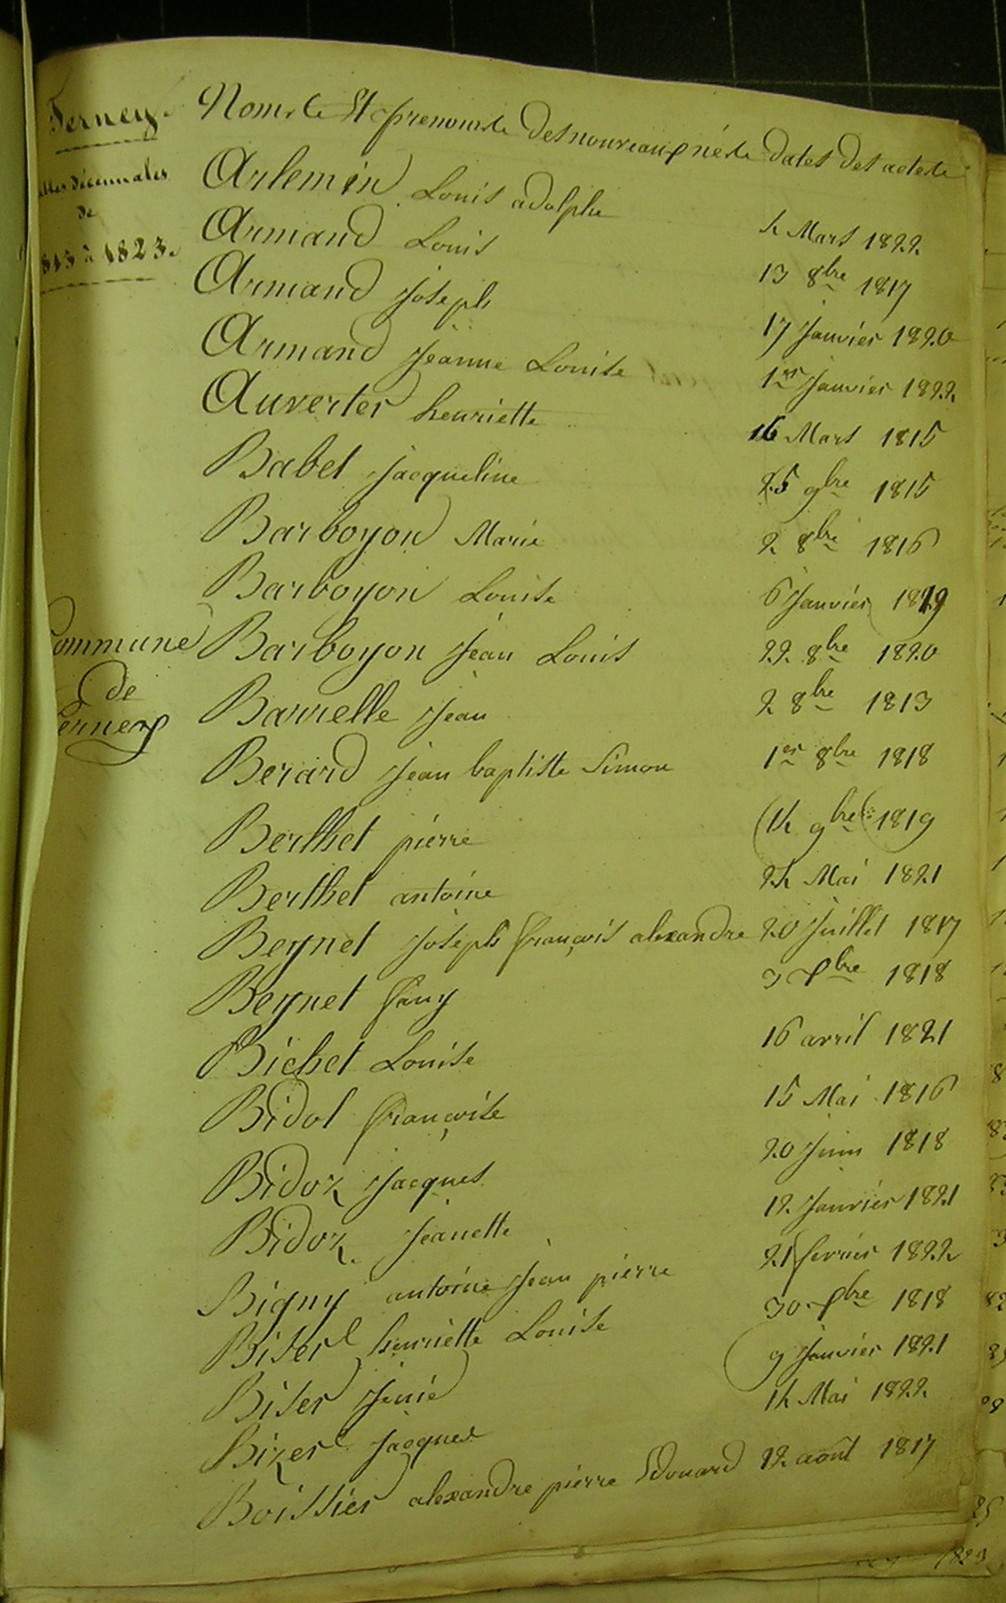 Ferney
Noms Et prenoms des nouveaux nés dates des actes
tables décennales
de
1813 à 1823.
Arlemin Louis adolphe 4 Mars 1822
Armand Louis 13 8bre 1817
Armand joseph 17 Janvier 1820
Armand Jeanne Louise 1er Janvier 1822
Auverter henriette 16 Mars 1815
Babel jacqueline 25 9bre 1815
Barboyon Marie 2 8bre 1816
Barboyon Louise 6 Janvier 1819
Commune
de
Ferney
Barboyon Jean Louis 22 8bre 1820
Barrelle Jean 2 8bre 1813
Berard Jean baptiste Simon 1er 8bre 1818
Berthet pierre 14 9bre 1819
Berthet antoine 24 Mai 1821
Beynet Joseph françois alexandre 20 Juillet 1817
Beynet fany 3 Xbre 1818
Bichet Louise 16 avril 1821
Bidol françoise 15 Mai 1816
Bidoz Jacques 20 Juin 1818
Bidoz Jeanette 12 Janvier 1821
Bigny antoine Jean pierre 21 fevrier 1822
Biser henriette Louise 30 Xbre 1818
Biser Jenie 9 Janvier 1821
Bizer jacques 14 Mai 1822
Boissier alexandre pierre Edouard 12 août 1817